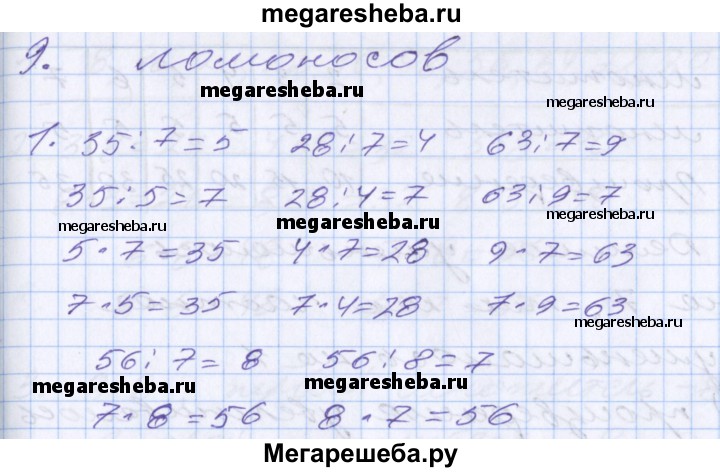 megaresheba.ru
9. ломоносов
megaresheba.ru
megaresheba.ru
1. 35:7=5 28:7=4 63:7=9
35:5=7 28:4=7 63:9=7
megaresheba.ru megaresheba.ru megaresheba.ru
5·7=35 4·7=28 9·7=63
7·5=35 7·4=28 7·9=63
megaresheba.ru
56:7=8 56:8=7
megaresheba.ru megaresheba.ru
7·8=56 8·7=56
Мегарешеба.ру